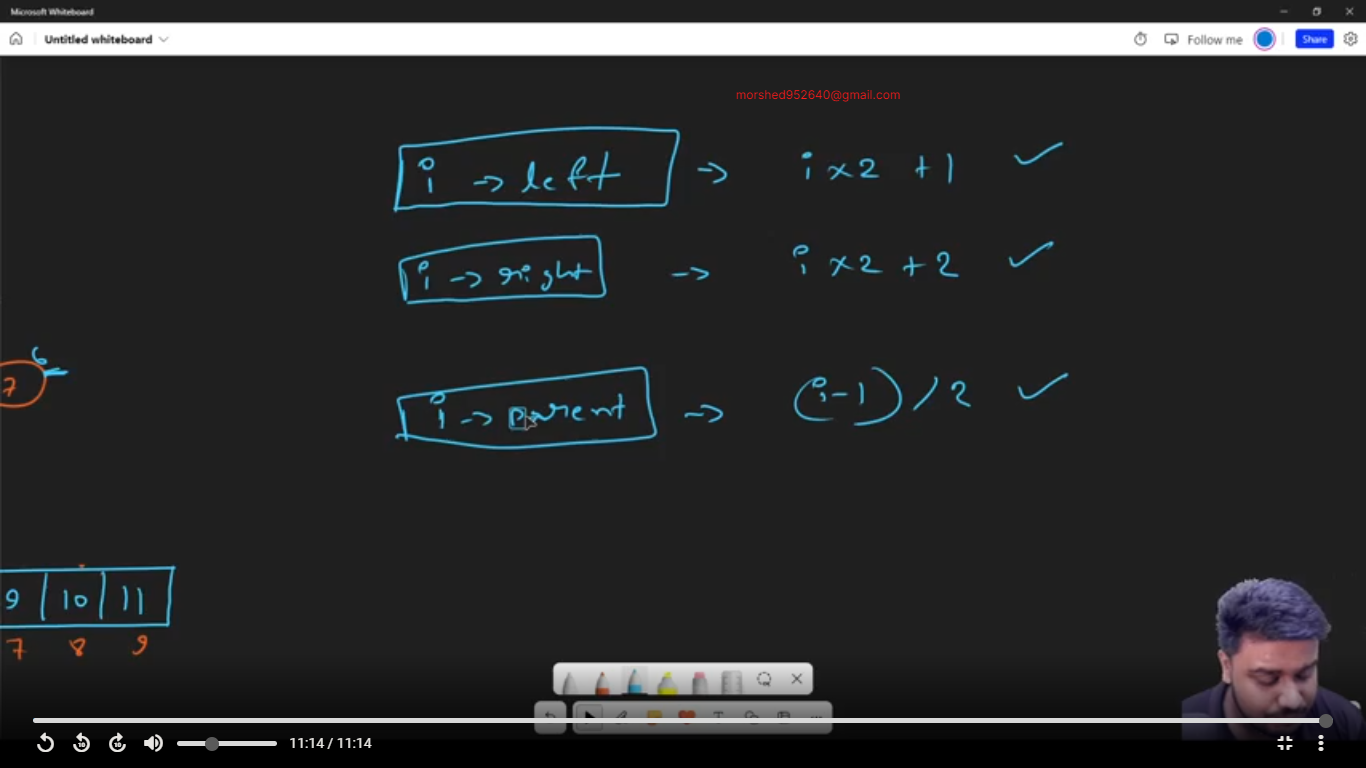 Microsoft Whiteboard
Untitled whiteboard
Follow me
Share
morshed952640@gmail.com
i -> left -> i × 2 + 1 ✓
i -> right -> i × 2 + 2 ✓
6
7
i -> parent -> (i-1) / 2 ✓
9 10 11
7 8 9
10 10
T
11:14 / 11:14